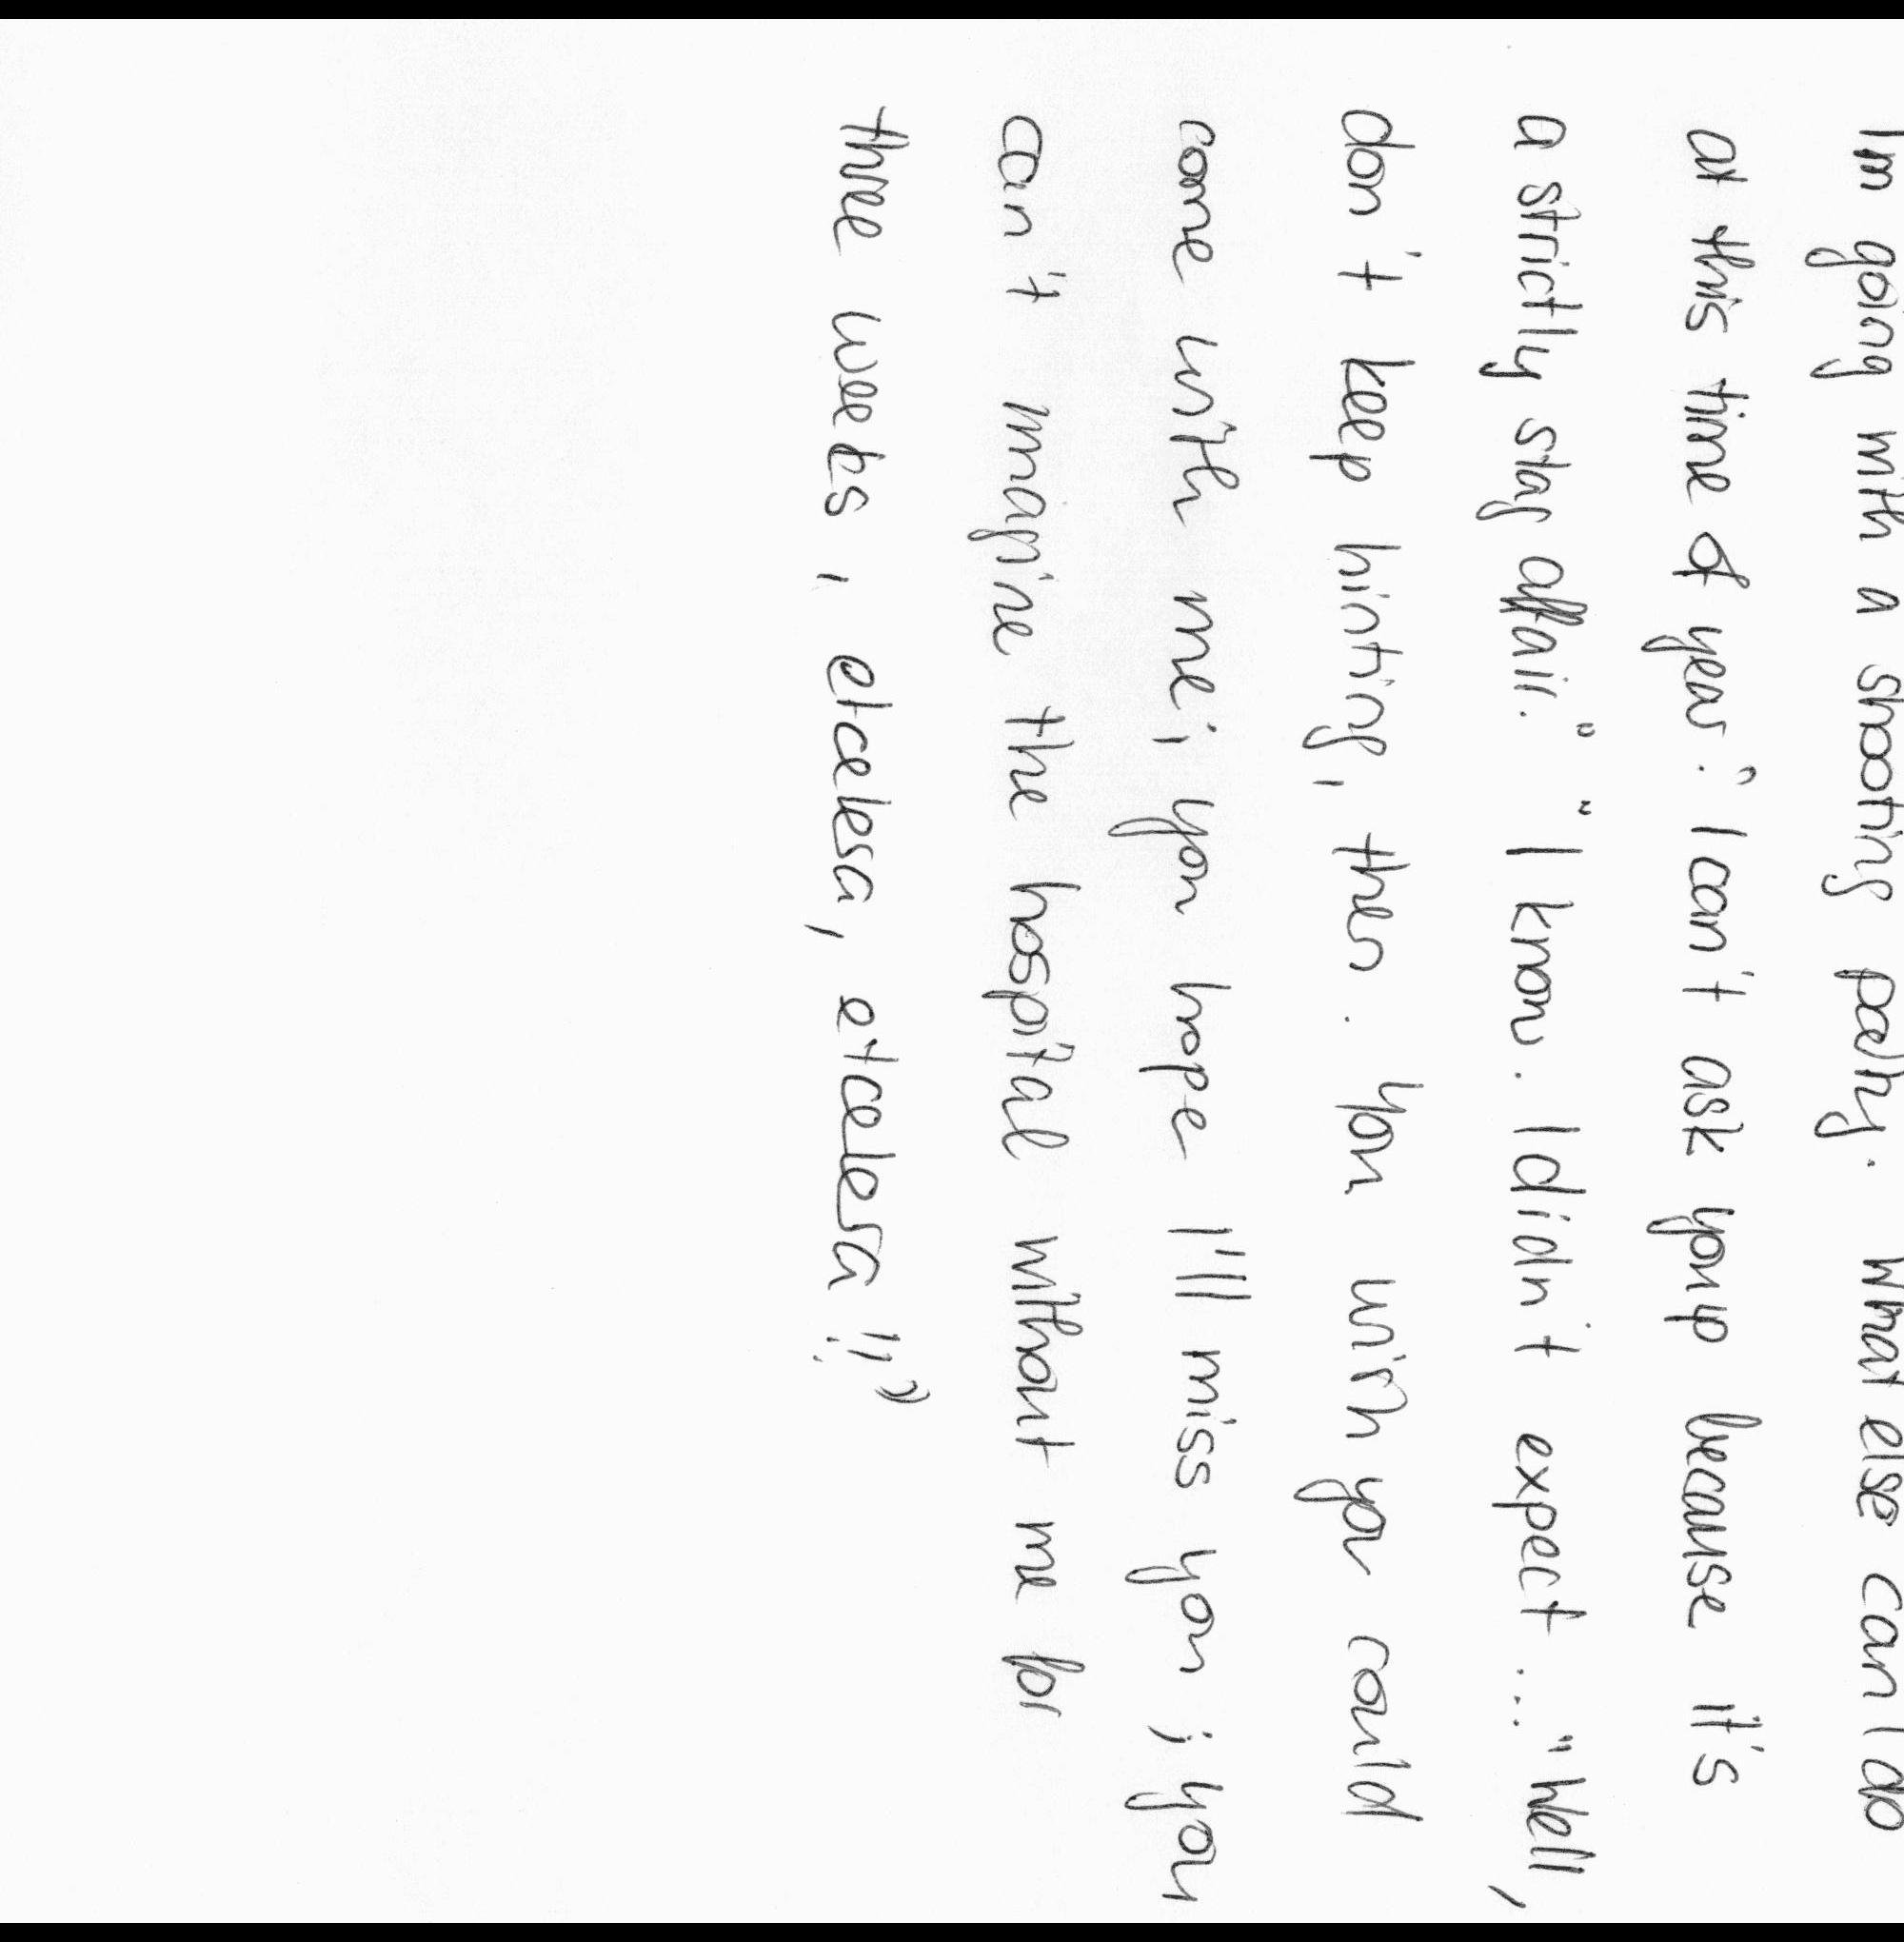 I'm going with a shooting party. What else can I do
at this time of year." I can't ask you up because it's
a strictly stag affair." "I know. I didn't expect ..." "Well,
don't keep hinting, then. You wish you could
come with me; you hope I'll miss you; you
can't imagine the hospital without me for
three weeks, etcetera, etcetera!"